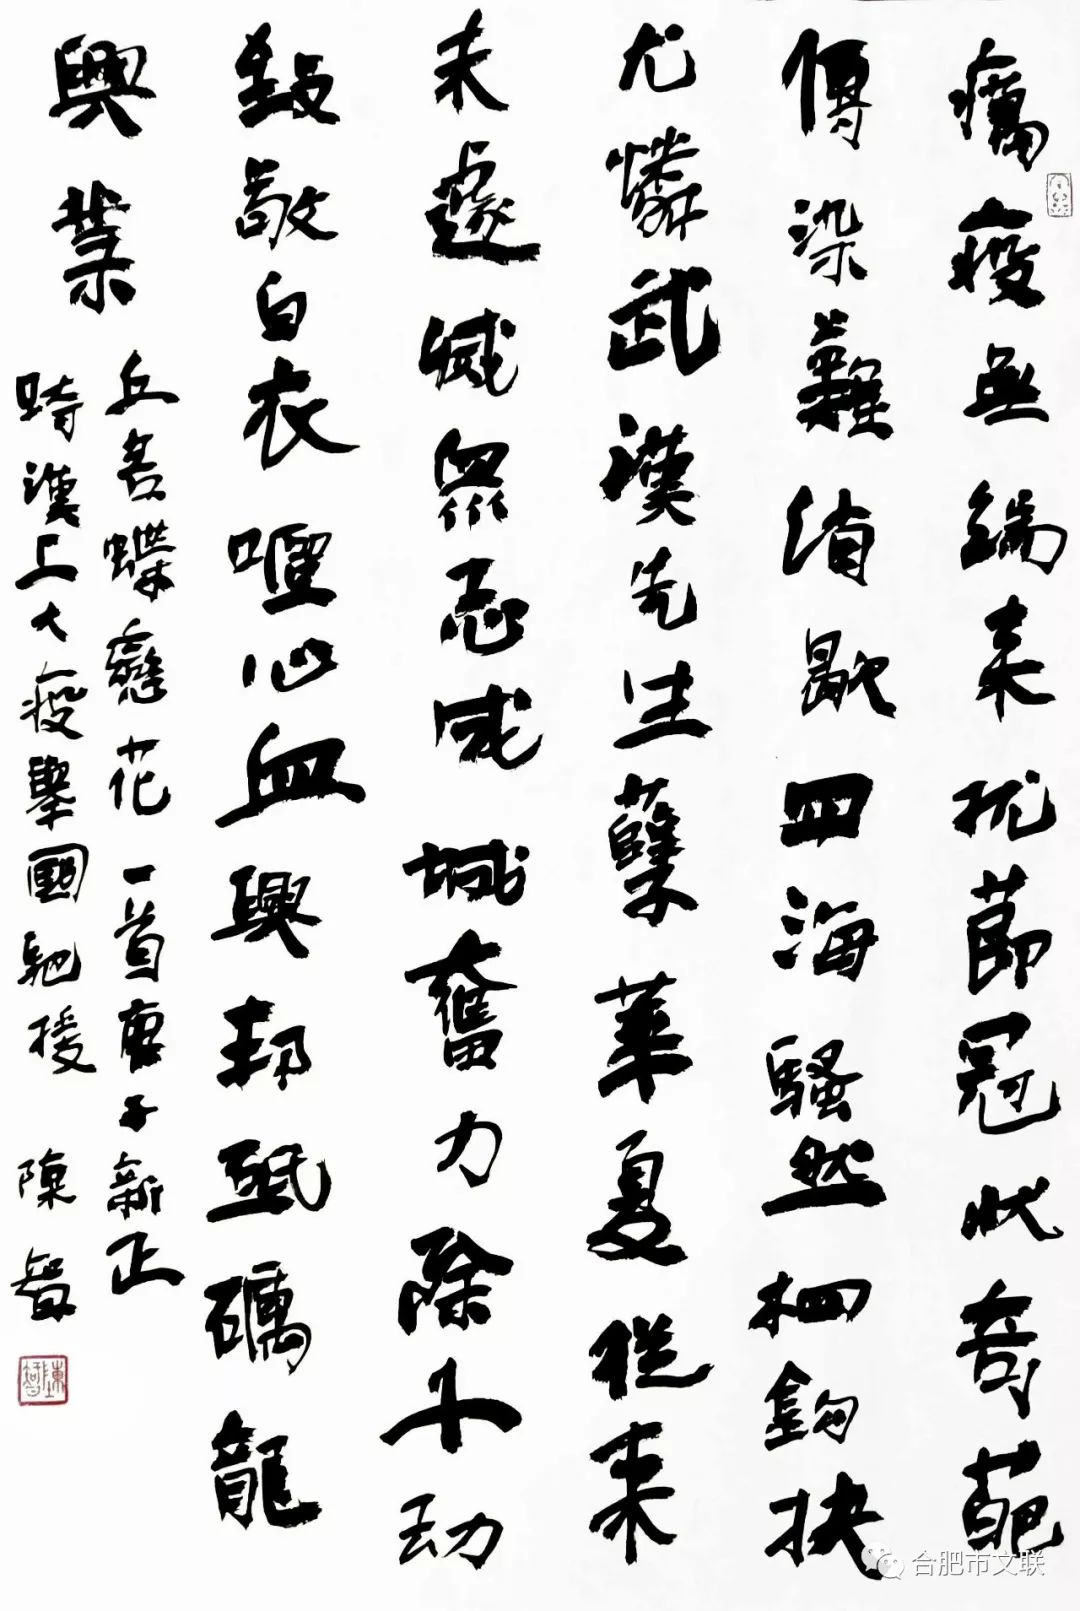 癘疫無端來擾節冠狀奇葩
傳染難消歇四海騷然栖鉤抉
尤憐武漢先生孽華夏從來
未遽滅眾志成城奮力除小劫
致敬白衣嘔心血興邦砥礪龍
興業
丘名蝶戀花一首庚子新正
時漢上大疫舉國馳援 陳智
合肥市文联